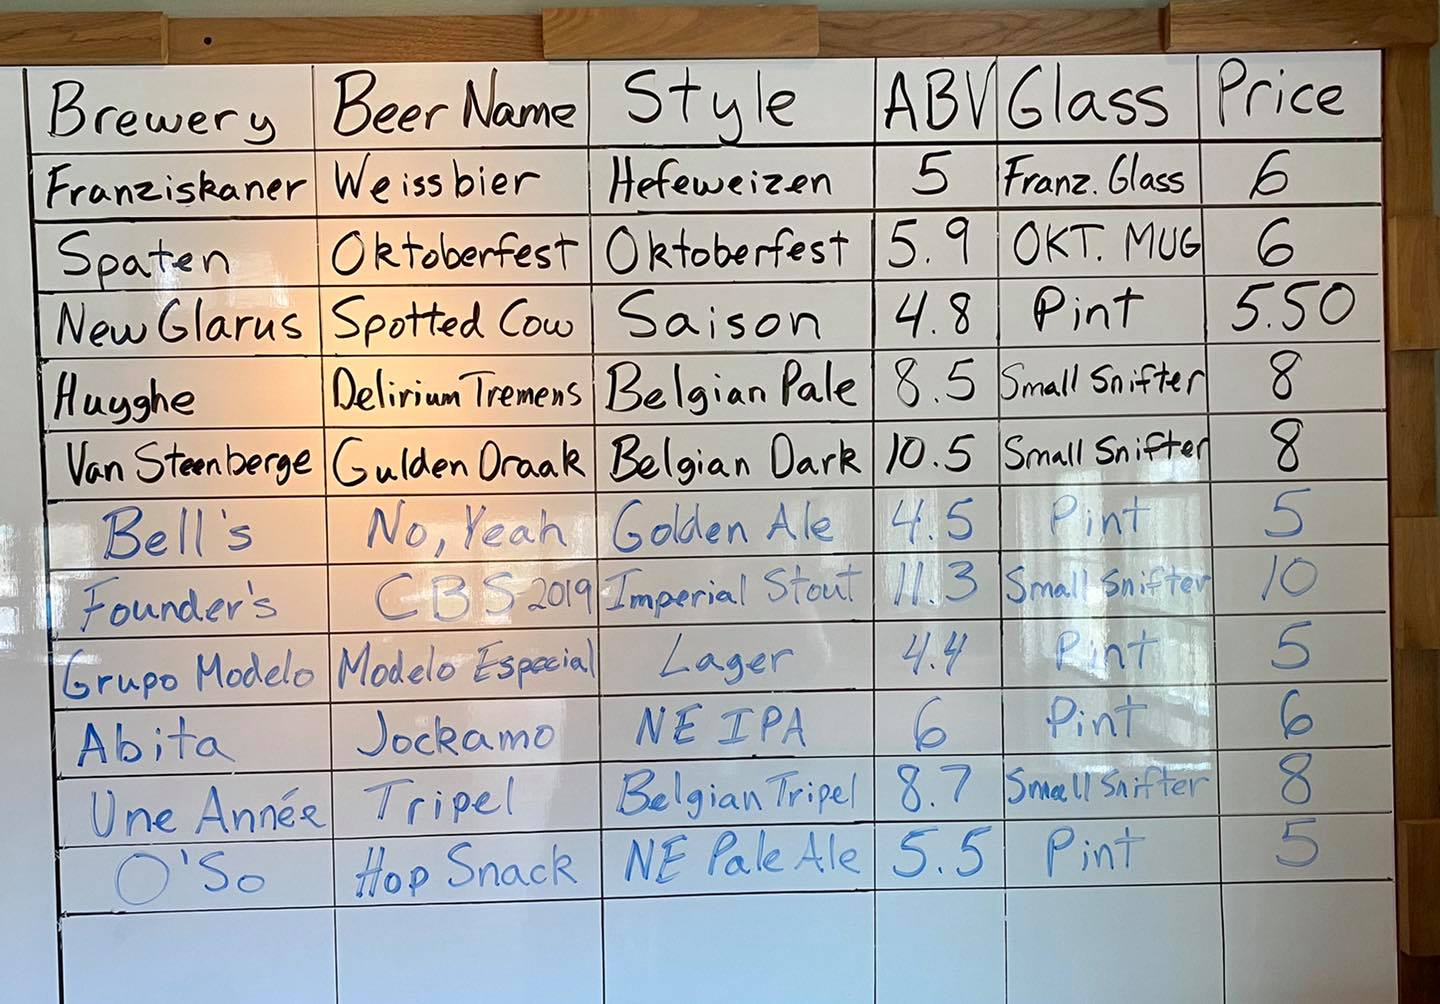 Brewery Beer Name Style ABV Glass Price
Franziskaner Weissbier Hefeweizen 5 Franz. Glass 6
Spaten Oktoberfest Oktoberfest 5.9 OKT. MUG 6
New Glarus Spotted Cow Saison 4.8 Pint 5.50
Huyghe Delirium Tremens Belgian Pale 8.5 Small Snifter 8
Van Steenberge Gulden Draak Belgian Dark 10.5 Small Snifter 8
Bell's No, Yeah Golden Ale 4.5 Pint 5
Founder's CBS 2019 Imperial Stout 11.3 Small Snifter 10
Grupo Modelo Modelo Especial Lager 4.4 Pint 5
Abita Jockamo NE IPA 6 Pint 6
Une Année Tripel Belgian Tripel 8.7 Small Snifter 8
O'So Hop Snack NE Pale Ale 5.5 Pint 5